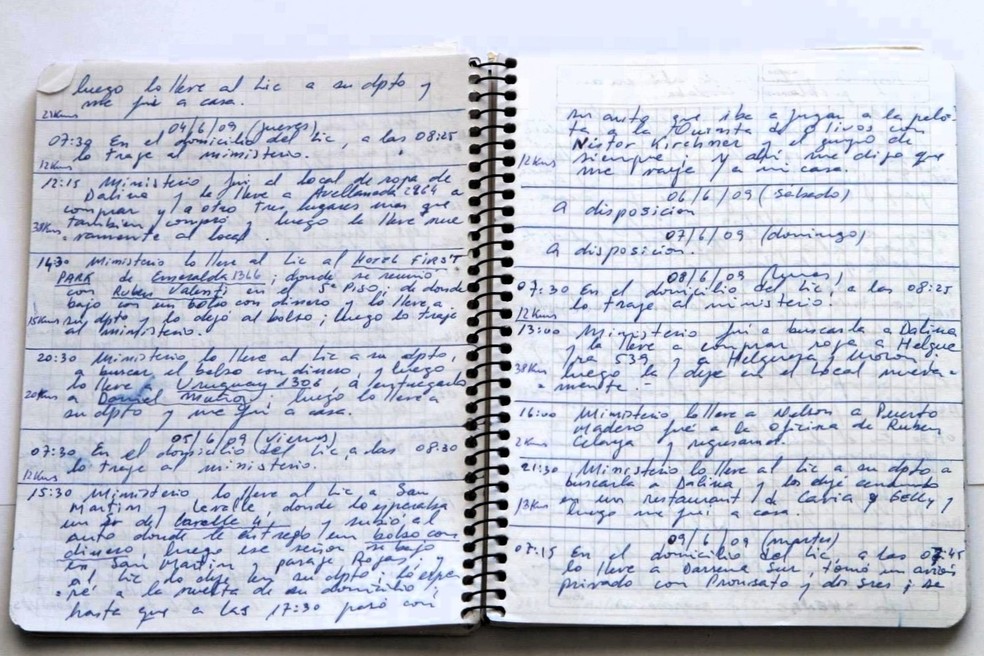 luego lo lleve al Lic a su dpto y
me fui a casa.
21Kms
04/6/09 (jueves)
07:30 En el domicilio del Lic, a las 08:25
lo traje al ministerio.
12Kms
12:15 Ministerio fui al local de ropa de
Dalina y la lleve a Avellaneda 2964 a
comprar y a otro tres lugares mas que
tambien compró y luego la lleve nue
38Kms
=vamente al local.
14:30 Ministerio lo lleve al Lic al HOTEL FIRST
PARK de Esmeralda 1366; donde se reunió
con Ruben Valenti en el 5º Piso; de donde
bajo con un bolso con dinero y lo lleve a
15Kms su dpto y lo dejó al bolso; luego lo traje
al ministerio.
20:30 Ministerio lo lleve al Lic a su dpto,
a buscar el bolso con dinero, y luego
lo lleve a Uruguay 1306, a entregarlo
20Kms a Daniel Muñoz; luego lo lleve a
su dpto y me fui a casa.
05/6/09 (viernes)
07:30 En el domicilio del Lic, a las 08:30
lo traje al ministerio.
12Kms
15:30 Ministerio lo lleve al Lic a San
Martin y Lavalle, donde lo esperaba
un Sr de y subió al
auto donde le entregó un bolso con
dinero, luego ese señor se bajo
en San Martin y pasaje Rojas y
al Lic lo deje en su dpto; lo espe
=ré a la vuelta de su domicilio;
hasta que a las 17:30 pasó con
su auto que iba a jugar a la pelo-
ta a la Quinta de Olivos con
Néstor Kirchner y el grupo de
siempre; y ahi me dijo que
12Kms me vaya a mi casa.
06/6/09 (sabado)
A disposicion
07/6/09 (domingo)
A disposicion.
08/6/09 (lunes)
07:30 En el domicilio del Lic, a las 08:25
lo traje al ministerio.
12Kms
13:00 Ministerio fui a buscarla a Dalina
y la lleve a comprar ropa a Helgue
ra 539 y a Helguera y Moron.
38Kms luego la deje en el local nueva-
=mente.-
16:00 Ministerio lo lleve a Nelson a Puerto
Madero fue a la oficina de Ruben
2Kms y regresando.
21:30 Ministerio lo lleve al Lic a su dpto a
buscarla a Dalina y los deje cenando
13Kms en un restaurant de Cavia y Gelly y
luego me fui a casa.
09/6/09 (martes)
07:15 En el domicilio del Lic, a las 07:45
lo lleve a Darsena Sur, tomó un avión
privado con y dos sres; se